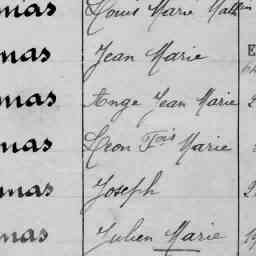 mas Louis Marie Math
mas Jean Marie
mas Ange Jean Marie
mas Leon Fois Marie
mas Joseph
mas Julien Marie 19